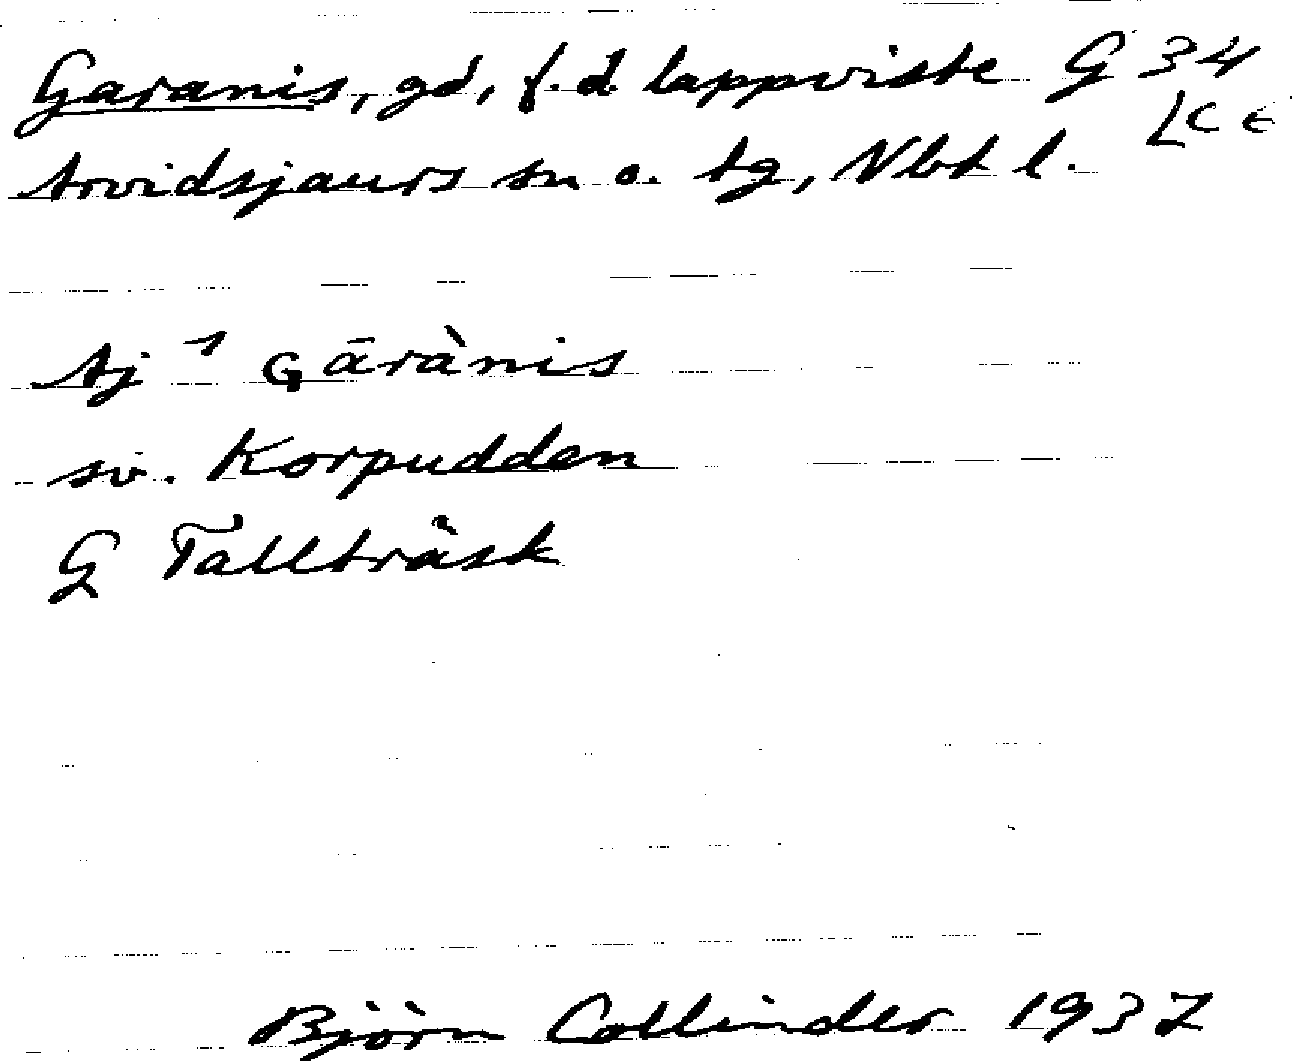 Garanis, gd, f.d. lappviste G 34
LCE
Arvidsjaurs sn o. tg, Nbt l.
Aj ɢārànis
sv. Korpudden
G Tallträsk
Björn Collinder 1937